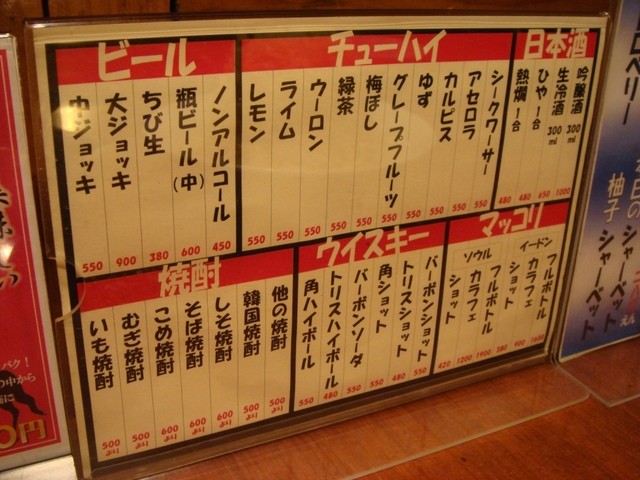 ビール
中ジョッキ 550
大ジョッキ 900
ちび生 380
瓶ビール(中) 600
ノンアルコール 450
チューハイ
レモン 550
ライム 550
ウーロン 550
緑茶 550
梅ぼし 550
グレープフルーツ 550
ゆず 550
カルピス 550
アセロラ 550
シークワーサー 550
日本酒
熱燗1合 480
ひや1合 480
生冷酒 300ml 650
吟醸酒 300ml 1000
焼酎
いも焼酎 500より
むぎ焼酎 500より
こめ焼酎 600より
そば焼酎 600より
しそ焼酎 600より
韓国焼酎 500より
他の焼酎 500より
ウイスキー
角ハイボール 550
トリスハイボール 480
バーボンソーダ 550
角ショット 550
トリスショット 480
バーボンショット 550
マッコリ
ソウル
ショット 420
カラフェ 1200
フルボトル 1900
イードン
ショット 580
カラフェ 900
フルボトル 1600
柚子シャーベット
シャーベット
えん
パク!
の中から
0円